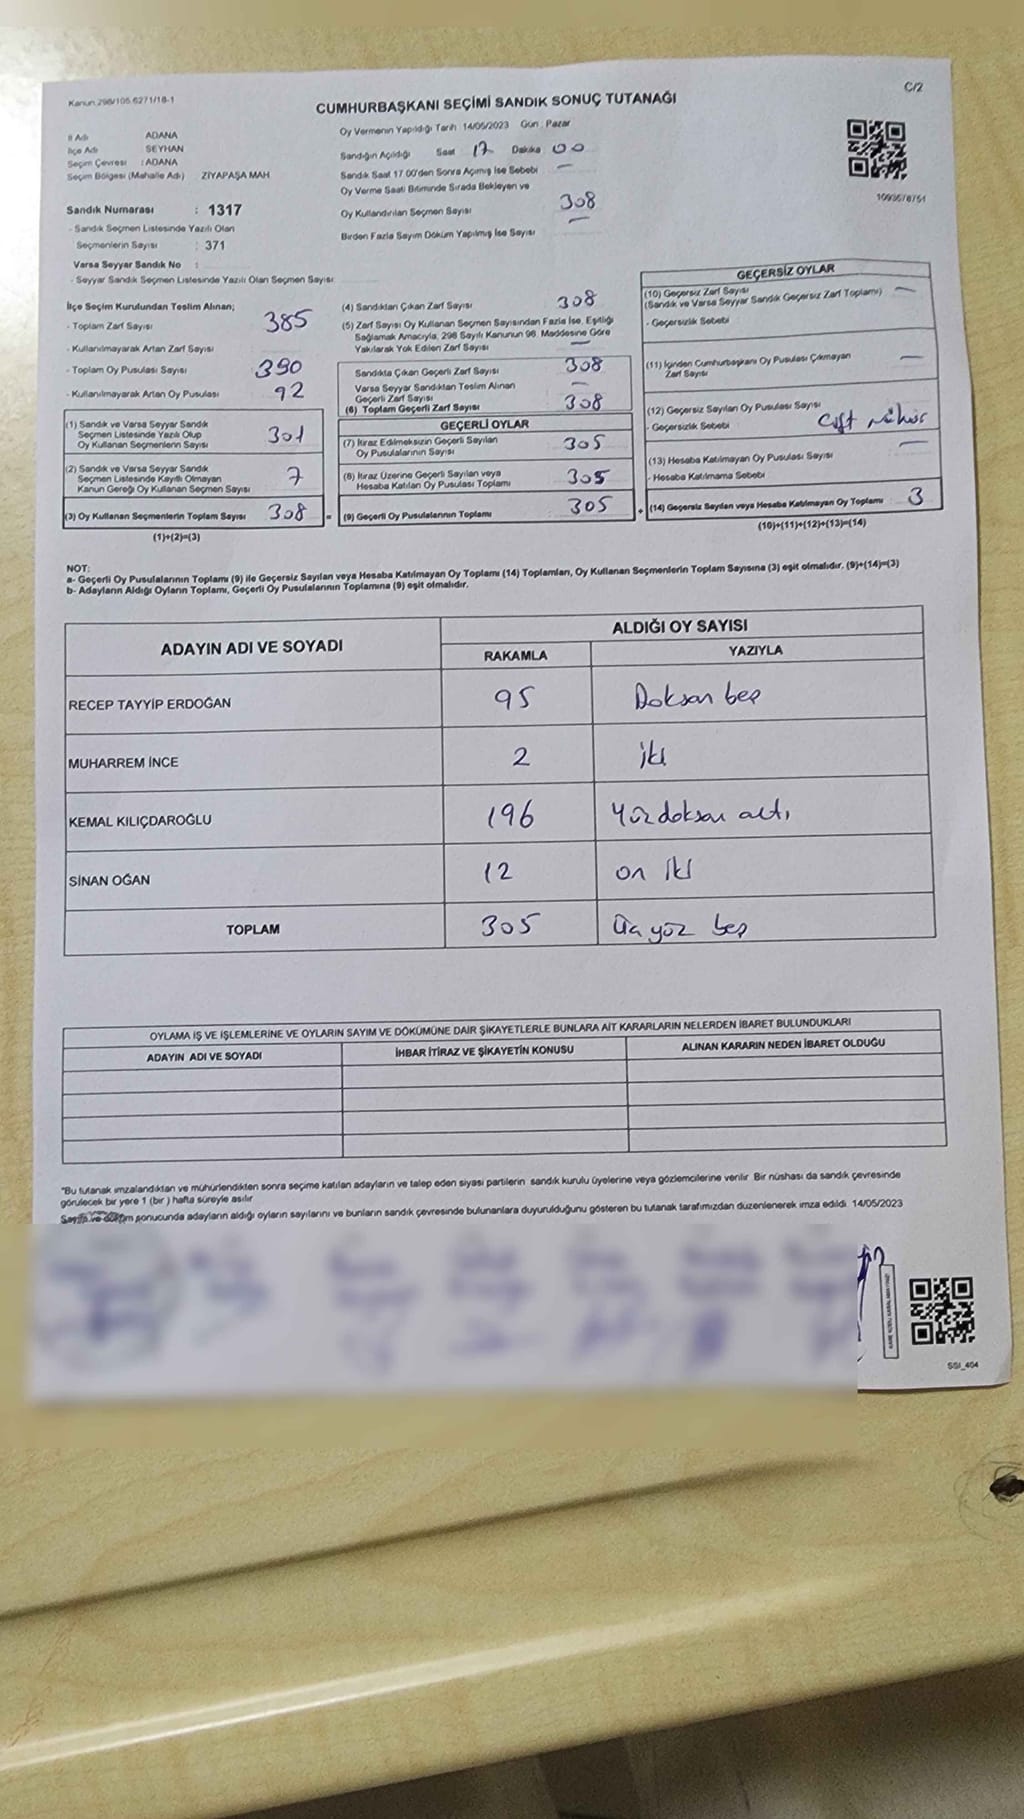 Kanun.298/105.6271/18-1
C/2
CUMHURBAŞKANI SEÇİMİ SANDIK SONUÇ TUTANAĞI
İl Adı ADANA
İlçe Adı SEYHAN
Seçim Çevresi : ADANA
Seçim Bölgesi (Mahalle Adı) ZİYAPAŞA MAH
Sandık Numarası : 1317
- Sandık Seçmen Listesinde Yazılı Olan
Seçmenlerin Sayısı : 371
Varsa Seyyar Sandık No :
- Seyyar Sandık Seçmen Listesinde Yazılı Olan Seçmen Sayısı
Oy Vermenin Yapıldığı Tarih 14/05/2023 Gün : Pazar
Sandığın Açıldığı Saat 17 Dakika 00
Sandık Saat 17 00'den Sonra Açılmış İse Sebebi —
Oy Verme Saati Bitiminde Sırada Bekleyen ve
Oy Kullandırılan Seçmen Sayısı 308
Birden Fazla Sayım Döküm Yapılmış İse Sayısı —
1093578751
İlçe Seçim Kurulundan Teslim Alınan;
- Toplam Zarf Sayısı 385
- Kullanılmayarak Artan Zarf Sayısı
- Toplam Oy Pusulası Sayısı 390
- Kullanılmayarak Artan Oy Pusulası 92
(1) Sandık ve Varsa Seyyar Sandık
Seçmen Listesinde Yazılı Olup
Oy Kullanan Seçmenlerin Sayısı 301
(2) Sandık ve Varsa Seyyar Sandık
Seçmen Listesinde Kayıtlı Olmayan
Kanun Gereği Oy Kullanan Seçmen Sayısı 7
(3) Oy Kullanan Seçmenlerin Toplam Sayısı 308 =
(1)+(2)=(3)
(4) Sandıktan Çıkan Zarf Sayısı 308
(5) Zarf Sayısı Oy Kullanan Seçmen Sayısından Fazla İse, Eşitliği
Sağlamak Amacıyla, 298 Sayılı Kanunun 98. Maddesine Göre
Yakılarak Yok Edilen Zarf Sayısı —
Sandıkta Çıkan Geçerli Zarf Sayısı 308
Varsa Seyyar Sandıktan Teslim Alınan
Geçerli Zarf Sayısı —
(6) Toplam Geçerli Zarf Sayısı 308
GEÇERLİ OYLAR
(7) İtiraz Edilmeksizin Geçerli Sayılan
Oy Pusulalarının Sayısı 305
(8) İtiraz Üzerine Geçerli Sayılan veya
Hesaba Katılan Oy Pusulası Toplamı 305
(9) Geçerli Oy Pusulalarının Toplamı 305 +
GEÇERSİZ OYLAR
(10) Geçersiz Zarf Sayısı —
(Sandık ve Varsa Seyyar Sandık Geçersiz Zarf Toplamı)
- Geçersizlik Sebebi
(11) İçinden Cumhurbaşkanı Oy Pusulası Çıkmayan
Zarf Sayısı —
(12) Geçersiz Sayılan Oy Pusulası Sayısı
- Geçersizlik Sebebi Çift mühür
(13) Hesaba Katılmayan Oy Pusulası Sayısı —
- Hesaba Katılmama Sebebi
(14) Geçersiz Sayılan veya Hesaba Katılmayan Oy Toplamı 3
(10)+(11)+(12)+(13)=(14)
NOT:
a- Geçerli Oy Pusulalarının Toplamı (9) ile Geçersiz Sayılan veya Hesaba Katılmayan Oy Toplamı (14) Toplamları, Oy Kullanan Seçmenlerin Toplam Sayısına (3) eşit olmalıdır. (9)+(14)=(3)
b- Adayların Aldığı Oyların Toplamı, Geçerli Oy Pusulalarının Toplamına (9) eşit olmalıdır.
ADAYIN ADI VE SOYADI ALDIĞI OY SAYISI
RAKAMLA YAZIYLA
RECEP TAYYİP ERDOĞAN 95 Doksan beş
MUHARREM İNCE 2 iki
KEMAL KILIÇDAROĞLU 196 Yüzdoksan altı
SİNAN OĞAN 12 on iki
TOPLAM 305 Üç yüz beş
OYLAMA İŞ VE İŞLEMLERİNE VE OYLARIN SAYIM VE DÖKÜMÜNE DAİR ŞİKAYETLERLE BUNLARA AİT KARARLARIN NELERDEN İBARET BULUNDUKLARI
ADAYIN ADI VE SOYADI İHBAR İTİRAZ VE ŞİKAYETİN KONUSU ALINAN KARARIN NEDEN İBARET OLDUĞU
"Bu tutanak imzalandıktan ve mühürlendikten sonra seçime katılan adayların ve talep eden siyasi partilerin sandık kurulu üyelerine veya gözlemcilerine verilir Bir nüshası da sandık çevresinde
görülecek bir yere 1 (bir ) hafta süreyle asılır
Sayım ve döküm sonucunda adayların aldığı oyların sayılarını ve bunların sandık çevresinde bulunanlara duyurulduğunu gösteren bu tutanak tarafımızdan düzenlenerek imza edildi. 14/05/2023
SSI_404